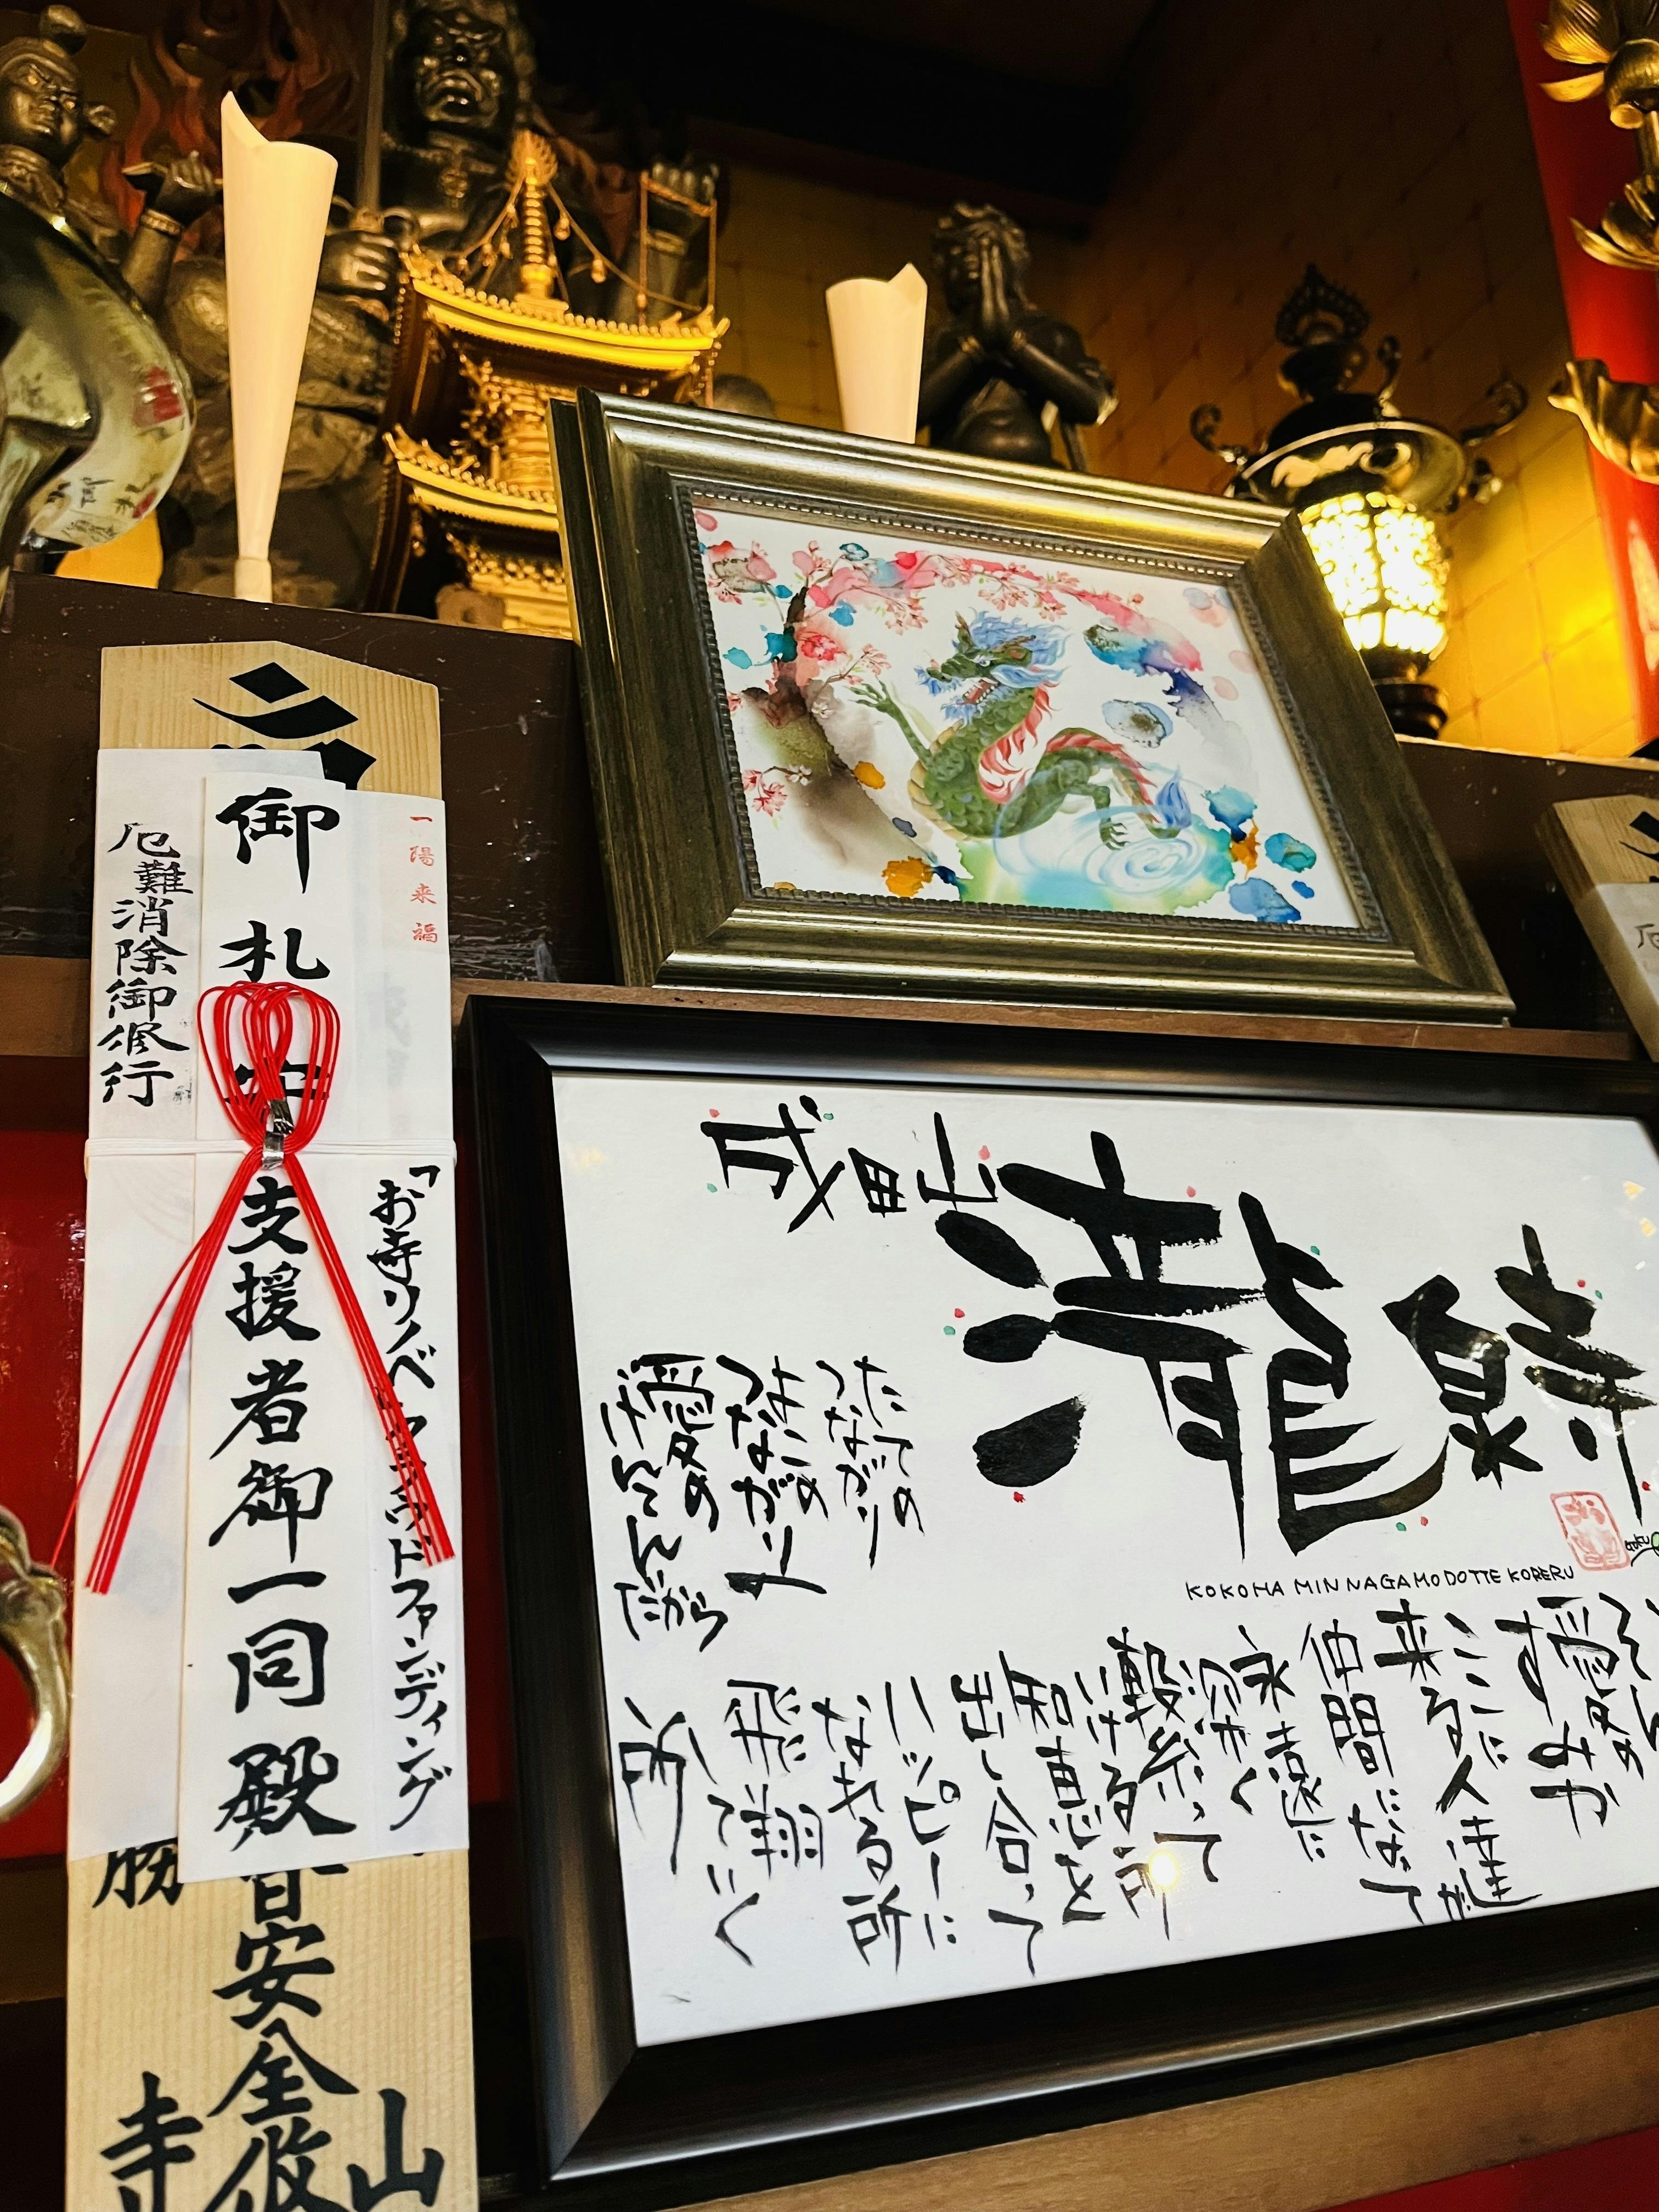 厄難消除御修行
御札
支援者御一同殿
一陽来福
「お寺リノベ
ドファンディング
安全
寺
山
成田山
瀧泉寺
たての
つながり
よこの
つながり
愛の
だから
KOKOHA MINNAGAMODOTTE KORERU
愛の
すみか
ここに
来る人達が
仲間になって
永遠に
深く
繋って
いける所
知恵を
出し合って
ハッピーに
なれる所
飛翔
していく
所